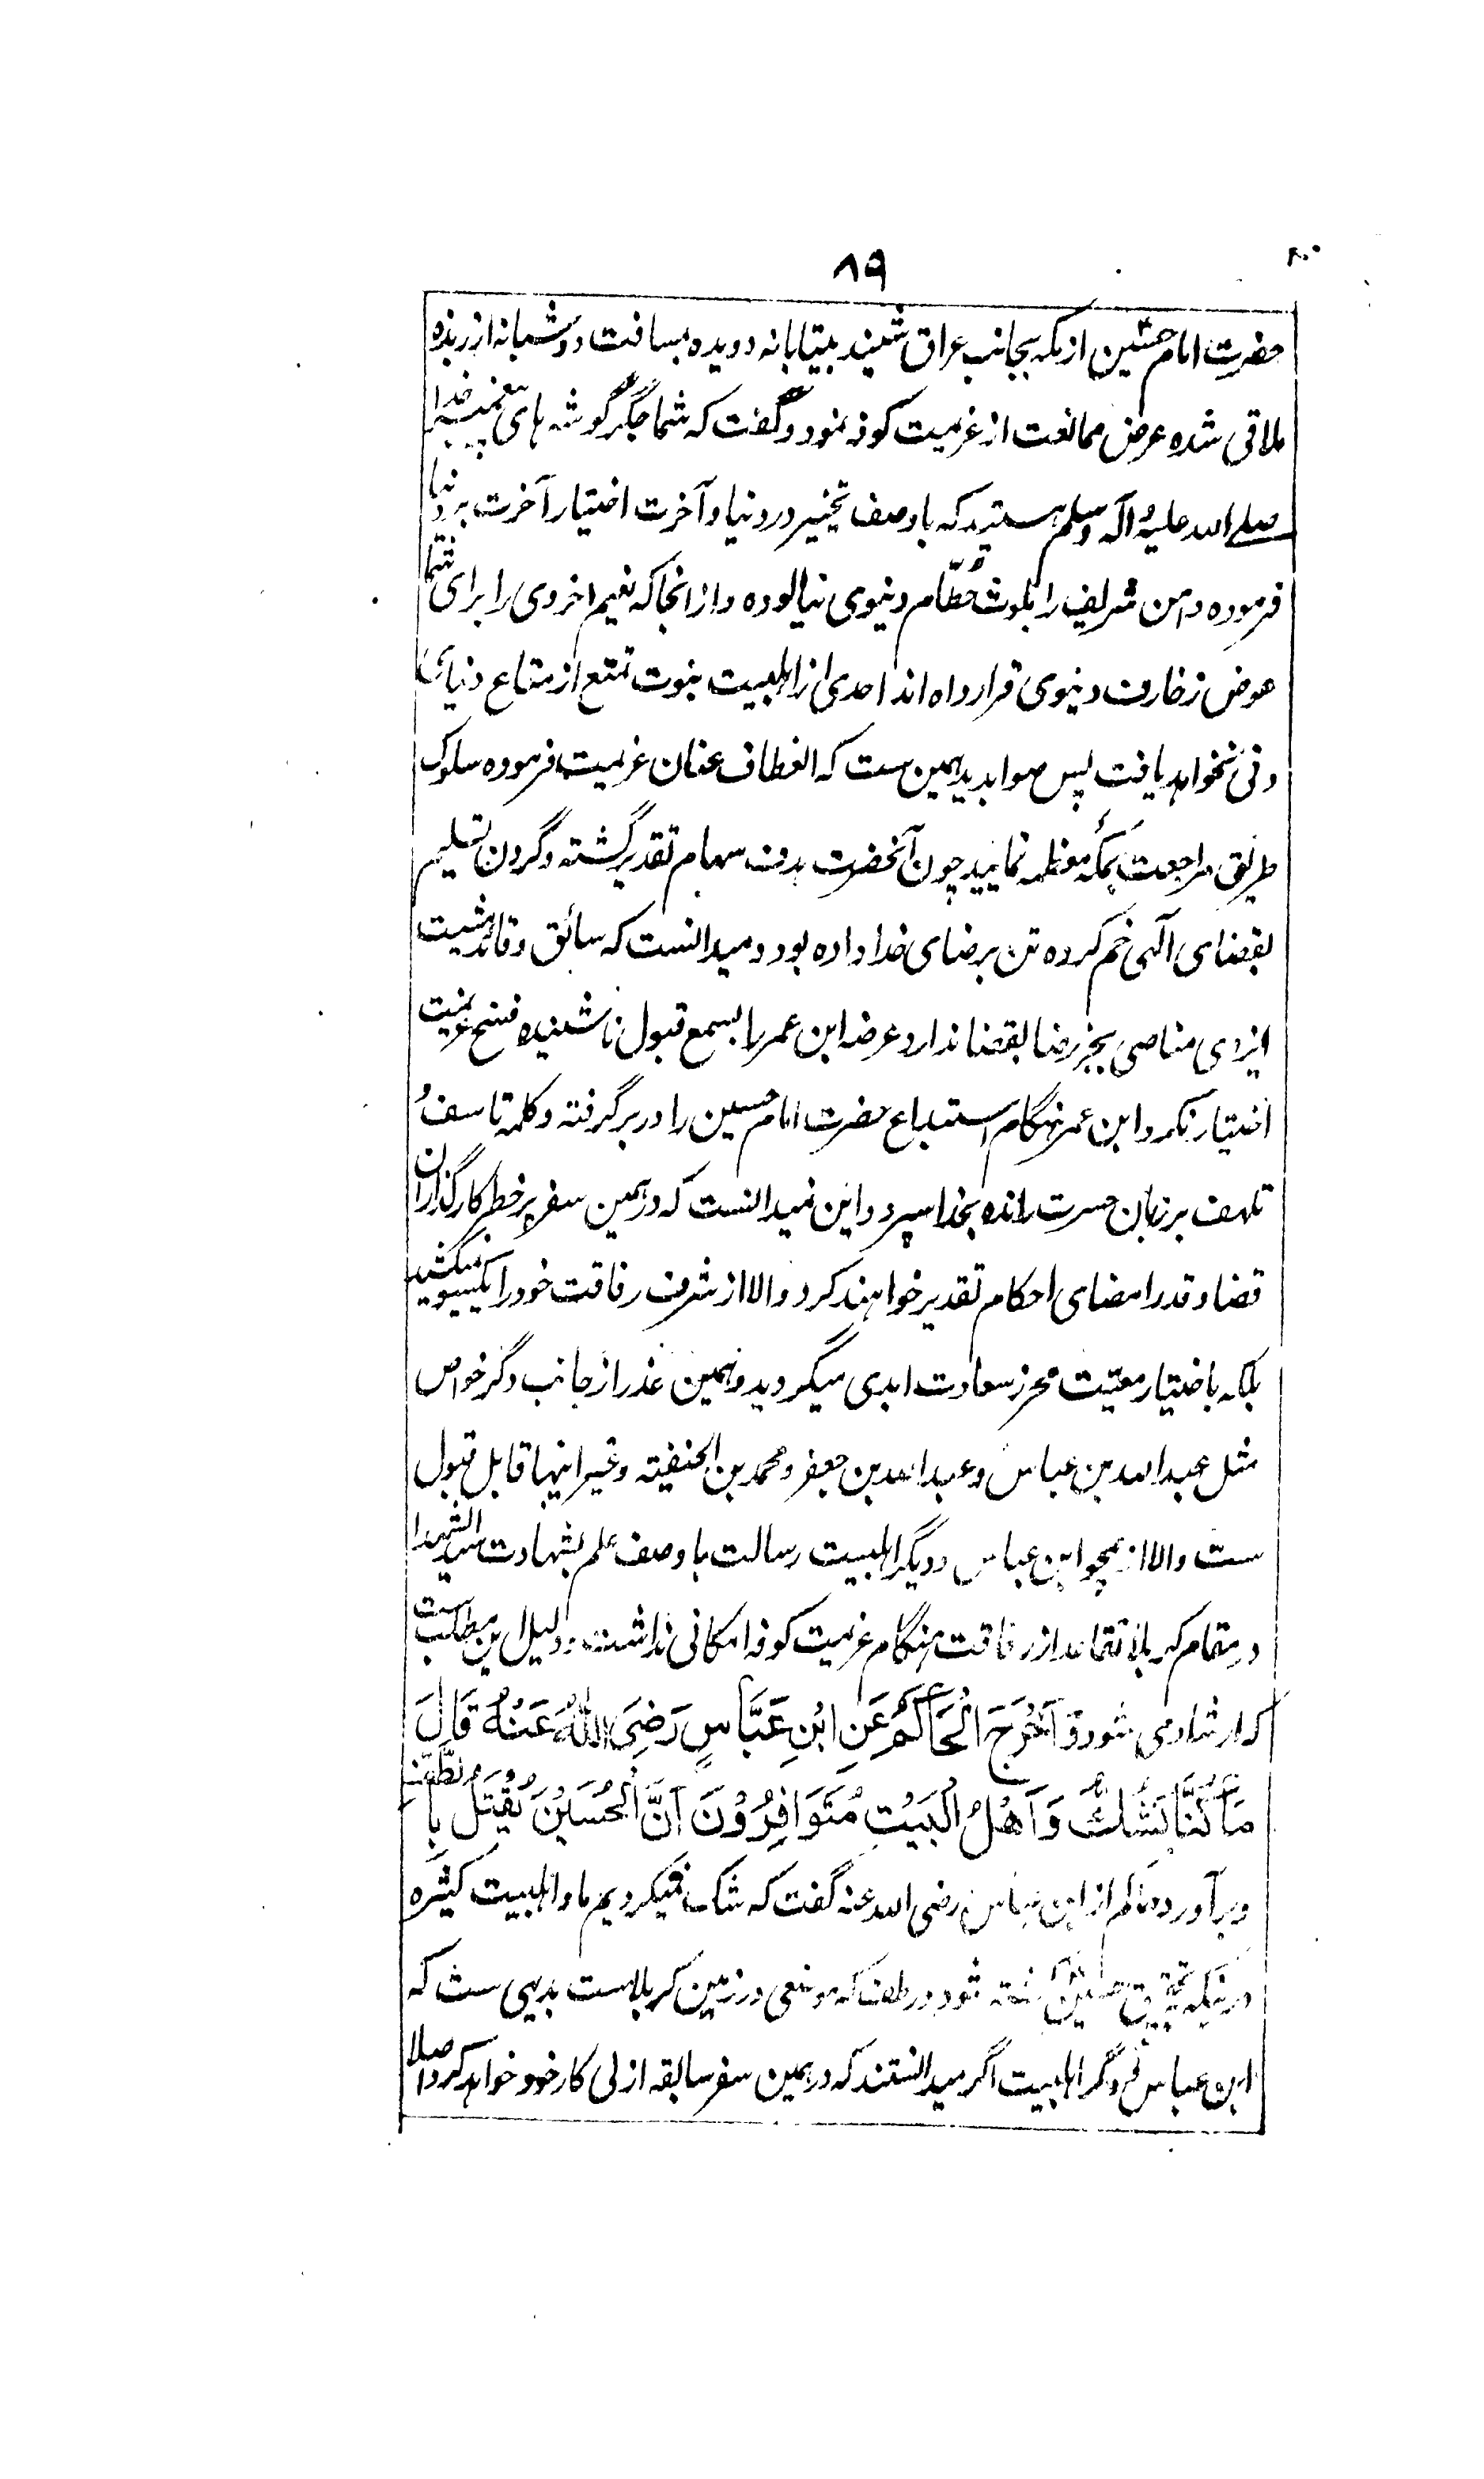 ۸۹
حضرت امام حسین از مکہ بجانب عراق شنید بیتابانہ دویدہ بمسافت دو شبانہ از ربذہ
ملاقی شدہ عرض ممانعت از عزیمت کوفہ نمود و گفت کہ شما جگر گوشہ ہای پیغمبر خدا
صلے اللہ علیہ و آلہ وسلم ہستید کہ با وصف تخییر در دنیا و آخرت اختیار آخرت بر دنیا
فرمودہ دامن شریف را بلوث حطام دنیوی نیالودہ و از انجا کہ نعیم اخروی را برای شما
عوض زخارف دنیوی قرار دادہ اند احدی از اہلبیت نبوت تمتع از متاع دنیای
دنی نخواہد یافت پس صوابدید ہمین ست کہ انعطاف عنان عزیمت فرمودہ سلوک
طریق مراجعت بمکہ معظمہ نمایید چون آنحضرت ہدف سہام تقدیر گشتہ و گردن تسلیم
بقضای الہی خم کردہ تن برضای خدا دادہ بود و میدانست کہ سائق و قائد مشیت
ایزدی مناصی بجز رضا بقضا ندارد عرض ابن عمر را بسمع قبول ناشنیدہ فسخ عزیمت
اختیار نکرد و ابن عمر ہنگام استیداع حضرت امام حسین را در بر گرفتہ و کلمہ تاسف و
تلہف بر زبان حسرت راندہ بخدا سپرد و این نمیدانست کہ در ہمین سفر پر خطر کارگذاران
قضا و قدر امضای احکام تقدیر خواہند کرد والا از شرف رفاقت خود را یکسو نمیکشید
بلکہ باختیار معیّت محرز سعادت ابدی میگردید و ہمین عذر از جانب دگر خواص
مثل عبد اللہ بن عباس و عبد اللہ بن جعفر و محمد بن الحنفیہ و غیر اینہا قابل قبول
ست والا از ہمچو ابن عباس و دیگر اہلبیت رسالت با وصف علم بشہادت سید الشہدا
در مقام کربلا تقاعد از رفاقت ہنگام عزیمت کوفہ امکانی نداشت و دلیل این مطلب ست
کہ ارشاد می شود وَ اَخْرَجَ الْحَاکِمُ عَنِ ابْنِ عَبَّاسٍ رَضِیَ اللہُ عَنْہُ قَالَ
مَا کُنَّا نَشُکُّ وَ اَھْلُ الْبَیْتِ مُتَوَافِرُوْنَ اَنَّ الْحُسَیْنَ یُقْتَلُ بِالطَّفِّ
و بر آوردہ حاکم از ابن عباس رضی اللہ عنہ گفت کہ شک نمیکردیم ما و اہلبیت کثیرہ
در نیکہ تحقیق حسین کشتہ شود در طف کہ موضعی در زمین کربلاست بدیہی ست کہ
ابن عباس و دگر اہلبیت اگر میدانستند کہ در ہمین سفر سابقہ ازلی کار خود خواہد کرد اصلا